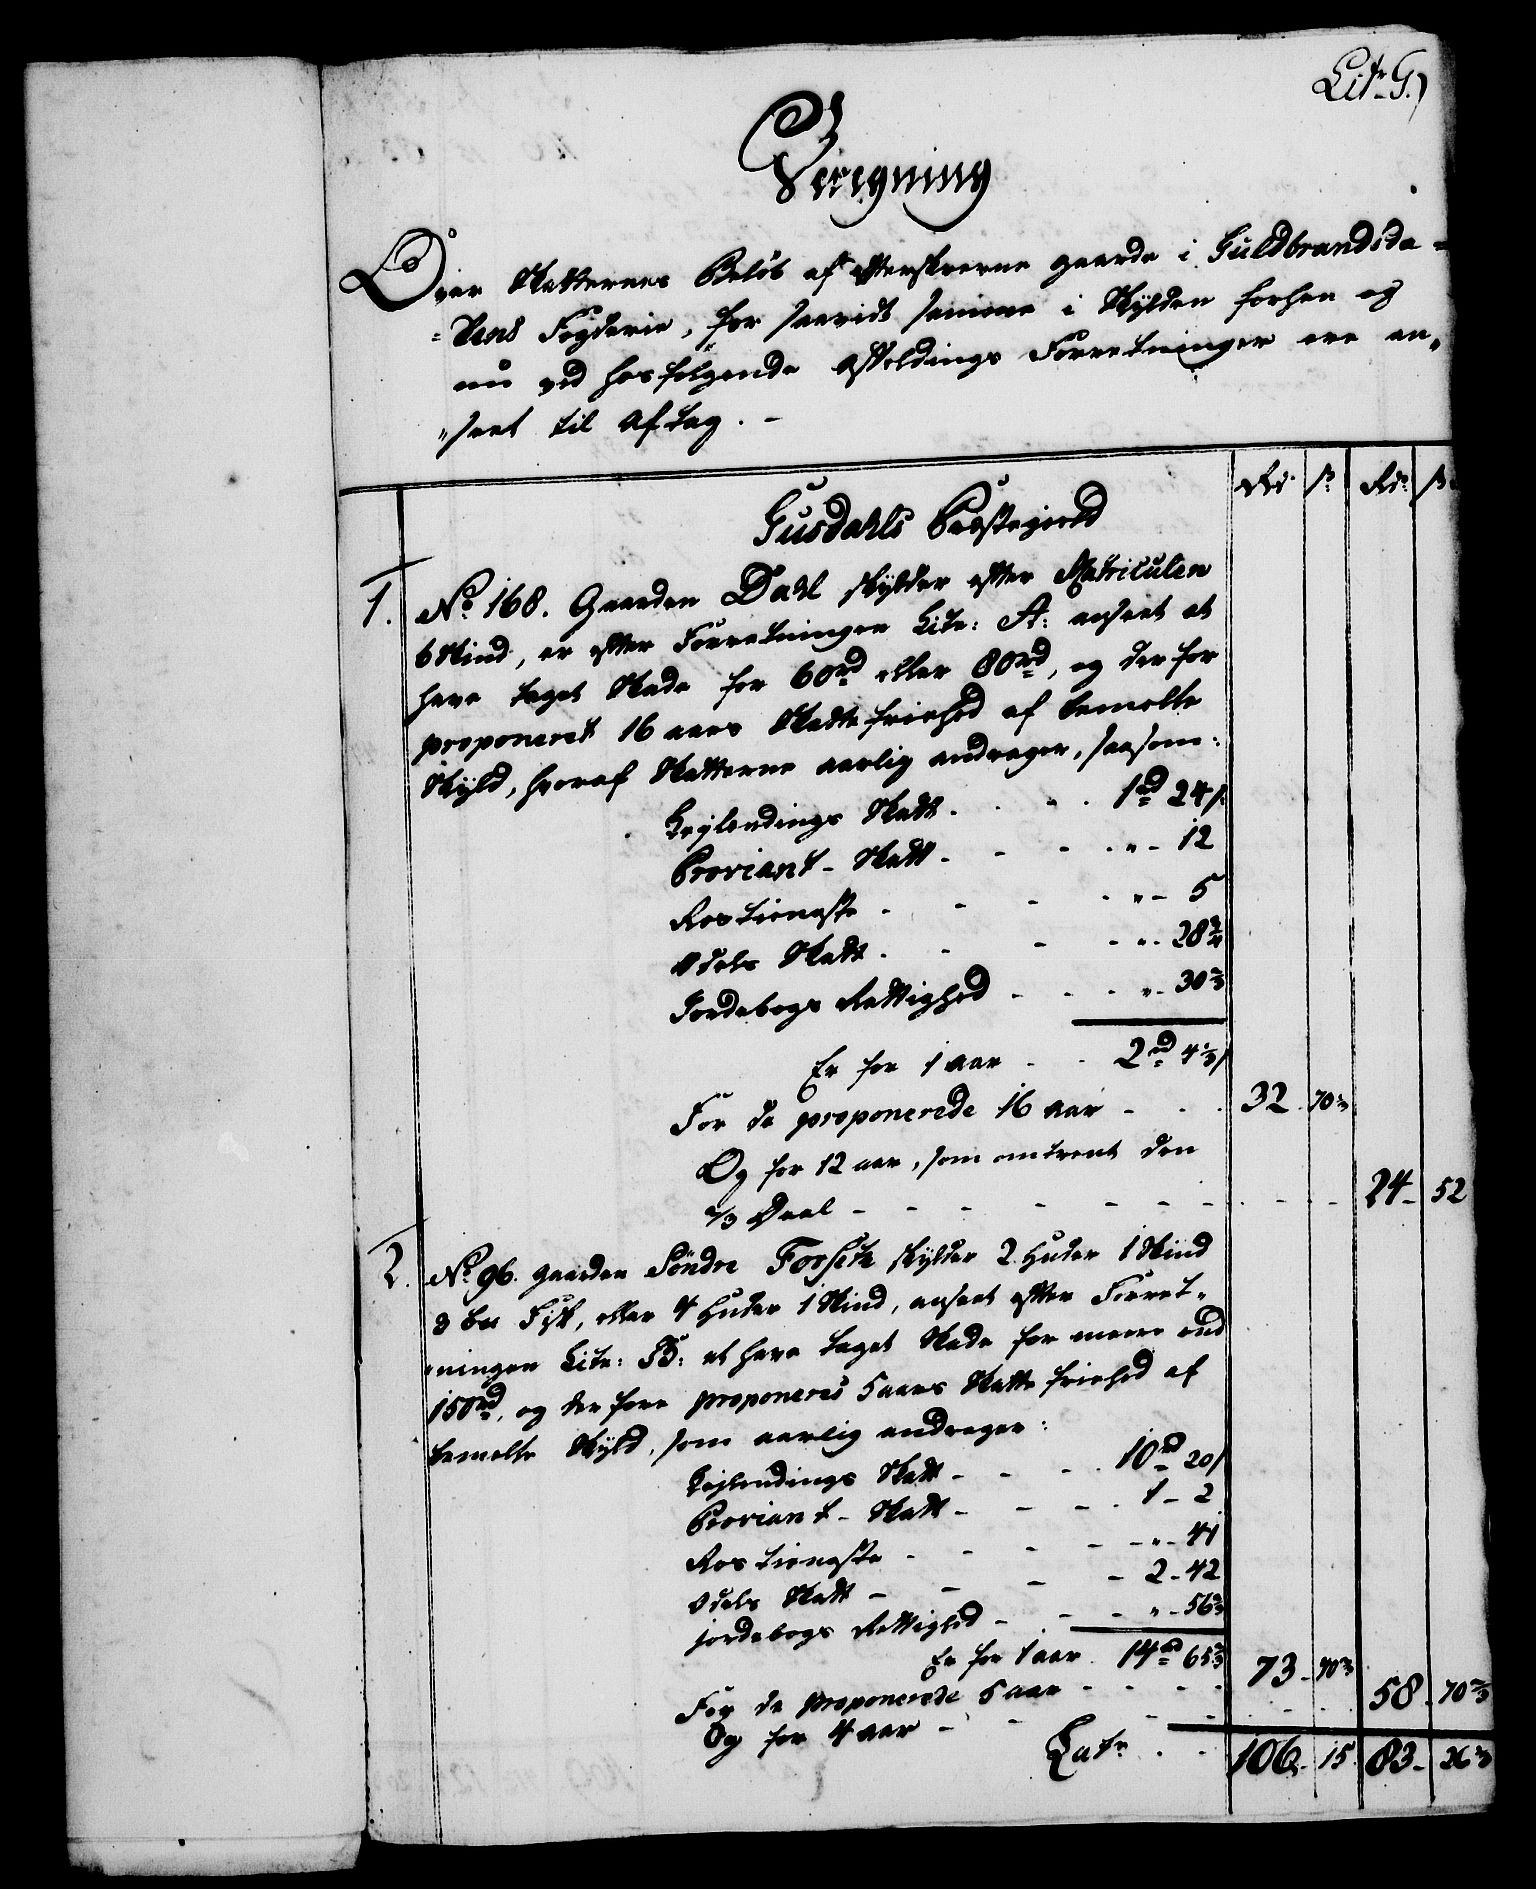 Litr G.)
Beregning
Over Skatternes Beløb af efterskrevne gaarde i Guldbrandsda=
=lens Fogderie, for saavidt samme i Skylden forhen og
nu ved hosfølgende Afteldings Forretninger ere an„
„seet til Aftag. -
Rd. s. Rd. s.
Gusdahls Præstegield
1. No. 168. Gaarden Dahl skylder efter Matriculen
6 Skind, er efter Forretningen Litr: A: anseet at
have taget Skade for 60rd eller 80rd, og derfor
proponeret 16 aars Skattefriehed af bemelte
Skyld, hvoraf Skatterne aarlig andrager, saasom:
Leylendings Skatt - - 1rd 24 s
Proviant - Skatt - - - „ - 12
Rostieneste - - - „ - 5
Odels Skatt - - - „ - 28 3/4
Jordebogs Rettighed - - - „ - 30 2/3
Er for 1 aar - - 2rd 4 1/3 s
For de proponerede 16 aar - - - 32. 70 2/3
Og for 12 aar, som omtrent den
2/3 Deel - - - - - - - - - 24 - 52
2. No. 96. gaarden Søndre Forseth skylder 2 Huder 1 Skind
3 bn Fisk, eller 4 Huder 1 Skind, anseet efter Forret„
„ningen Litr: B: at have taget Skade for meere end
150rd, og derfore proponeres 5 aars Skatte friehed af
bemelte Skyld, som aarlig andrager:
Leylendings Skatt - - - 10rd 20 s
Proviant - Skatt - - - 1 - 2
Rostieneste - - - - „ - 41
Odels Skatt - - - - 2 - 42
jordebogs Rettighed - - - „ - 56 2/3
Er for 1 aar. 14rd 65 2/3
For de proponerede 5 aar - - - - 73 - 40 2/3
Og for 4 aar - - - - - 58 - 70 2/3
Latr. - - 106. 15. 83 - 26 2/3